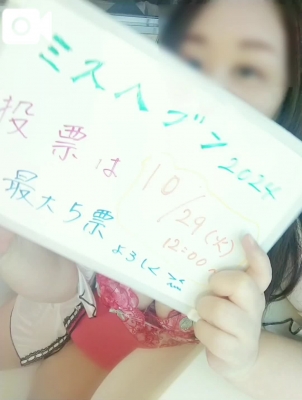 ミスヘブン2024
投票は 10/29(火)
12:00〜
最大5票
よろしく